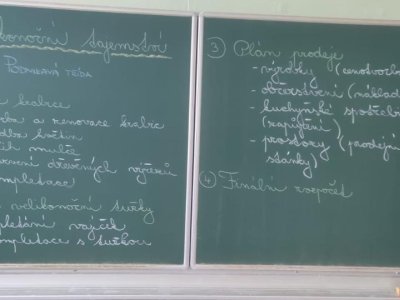 konoční tajemství
PODNIKAVÁ TŘÍDA
krabice
ba a renovace krabic
dba květin
mulče
ření dřevěných výřezů
kompletace
velikonoční tužky
pletání vajíček
ompletace s tužkou
③ Plán prodeje
- výrobky (cenotvorba
- občerstvení (náklad
- kuchyňské spotřebi
(zapůjčení)
- prostory (prodejní
stánky)
④ Finální rozpočet